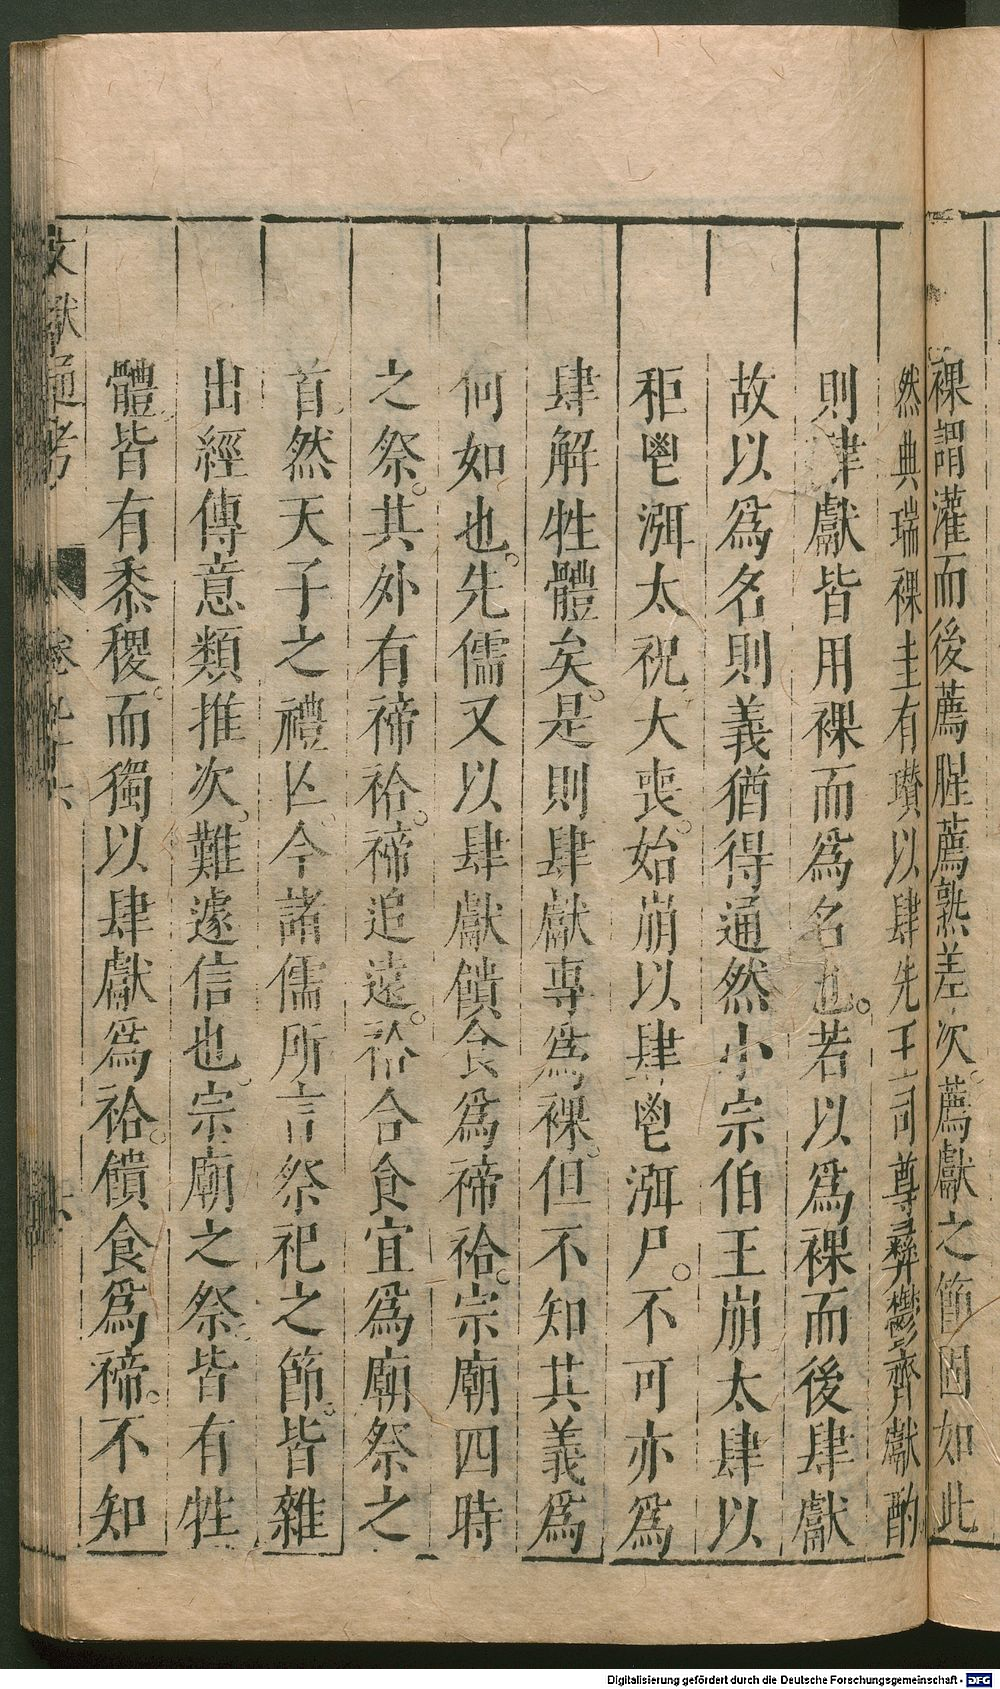 祼謂灌而後薦腥薦熟差次薦獻之節固如此
然典瑞祼圭有瓚以肆先王司尊彝鬱齊獻酌
則肆獻皆用祼而爲名也若以爲祼而後肆獻
故以爲名則義猶得通然小宗伯王崩太肆以
秬鬯渳太祝大喪始崩以肆鬯渳尸不可亦爲
肆解牲體矣是則肆獻專爲祼但不知其義爲
何如也先儒又以肆獻饋食爲禘祫宗廟四時
之祭其外有禘祫禘追遠祫合食宜爲廟祭之
首然天子之禮亾今諸儒所言祭祀之節皆雜
出經傳意類推次難遽信也宗廟之祭皆有牲
體皆有黍稷而獨以肆獻爲祫饋食爲禘不知
文獻通考
Digitalisierung gefördert durch die Deutsche Forschungsgemeinschaft - DFG